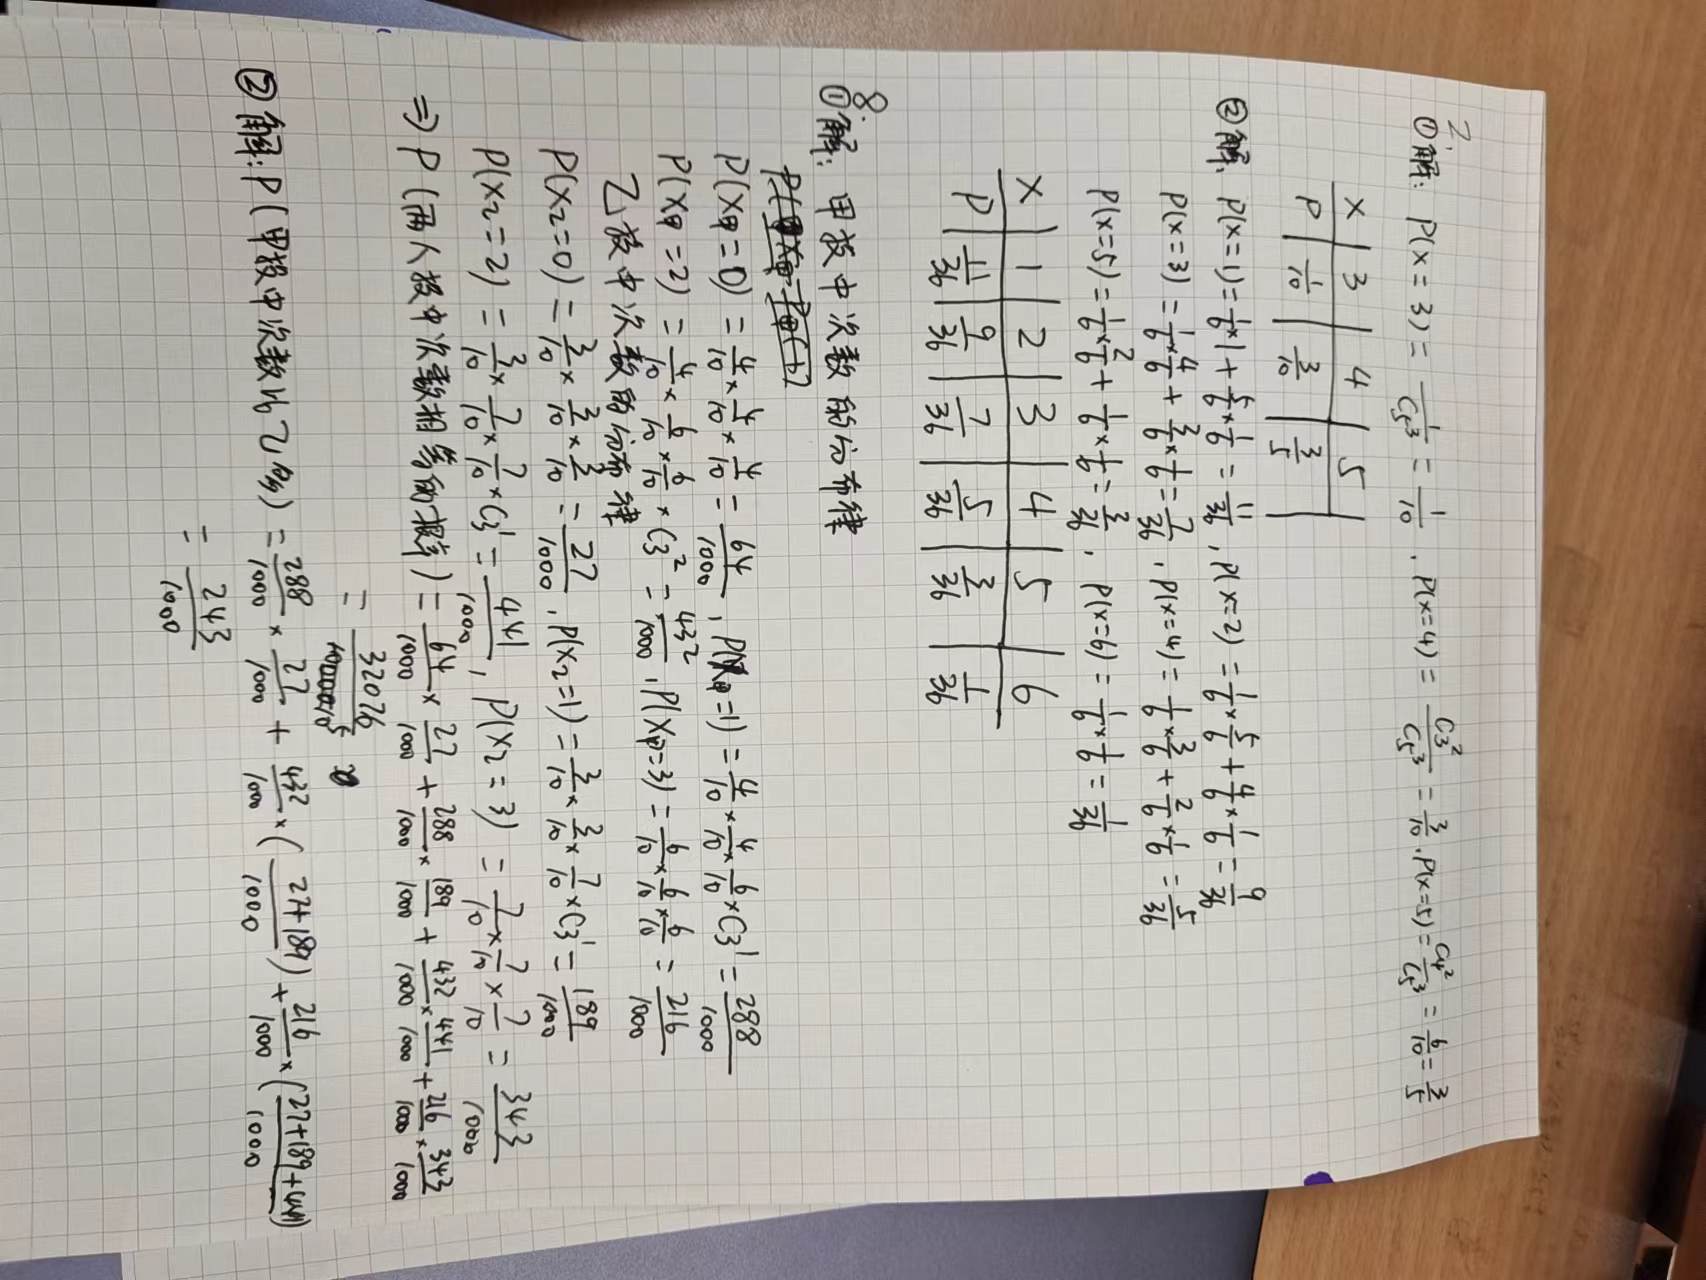 2.
①解: P(x=3) = 1/C₅³ = 1/10 , P(x=4) = C₃²/C₅³ = 3/10 , P(x=5) = C₄²/C₅³ = 6/10 = 3/5
X | 3 | 4 | 5
P | 1/10 | 3/10 | 3/5
②解: P(x=1) = 1/6×1 + 5/6×1/6 = 11/36 , P(x=2) = 1/6×5/6 + 4/6×1/6 = 9/36
P(x=3) = 1/6×4/6 + 3/6×1/6 = 7/36 , P(x=4) = 1/6×3/6 + 2/6×1/6 = 5/36
P(x=5) = 1/6×2/6 + 1/6×1/6 = 3/36 , P(x=6) = 1/6×1/6 = 1/36
X | 1 | 2 | 3 | 4 | 5 | 6
P | 11/36 | 9/36 | 7/36 | 5/36 | 3/36 | 1/36
8.
①解: 甲投中次数的分布律
P(X甲=0) = 4/10×4/10×4/10 = 64/1000 , P(X甲=1) = 4/10×4/10×6/10×C₃¹ = 288/1000
P(X甲=2) = 4/10×6/10×6/10×C₃² = 432/1000 , P(X甲=3) = 6/10×6/10×6/10 = 216/1000
乙投中次数的分布律
P(X乙=0) = 3/10×3/10×3/10 = 27/1000 , P(X乙=1) = 3/10×3/10×7/10×C₃¹ = 189/1000
P(X乙=2) = 3/10×7/10×7/10×C₃¹ = 441/1000 , P(X乙=3) = 7/10×7/10×7/10 = 343/1000
⇒ P(两人投中次数相等的概率) = 64/1000×27/1000 + 288/1000×189/1000 + 432/1000×441/1000 + 216/1000×343/1000
= 32076
②解: P(甲投中次数比乙高) = 288/1000×27/1000 + 432/1000×(27+189)/1000 + 216/1000×(27+189+441)/1000
= 243/1000